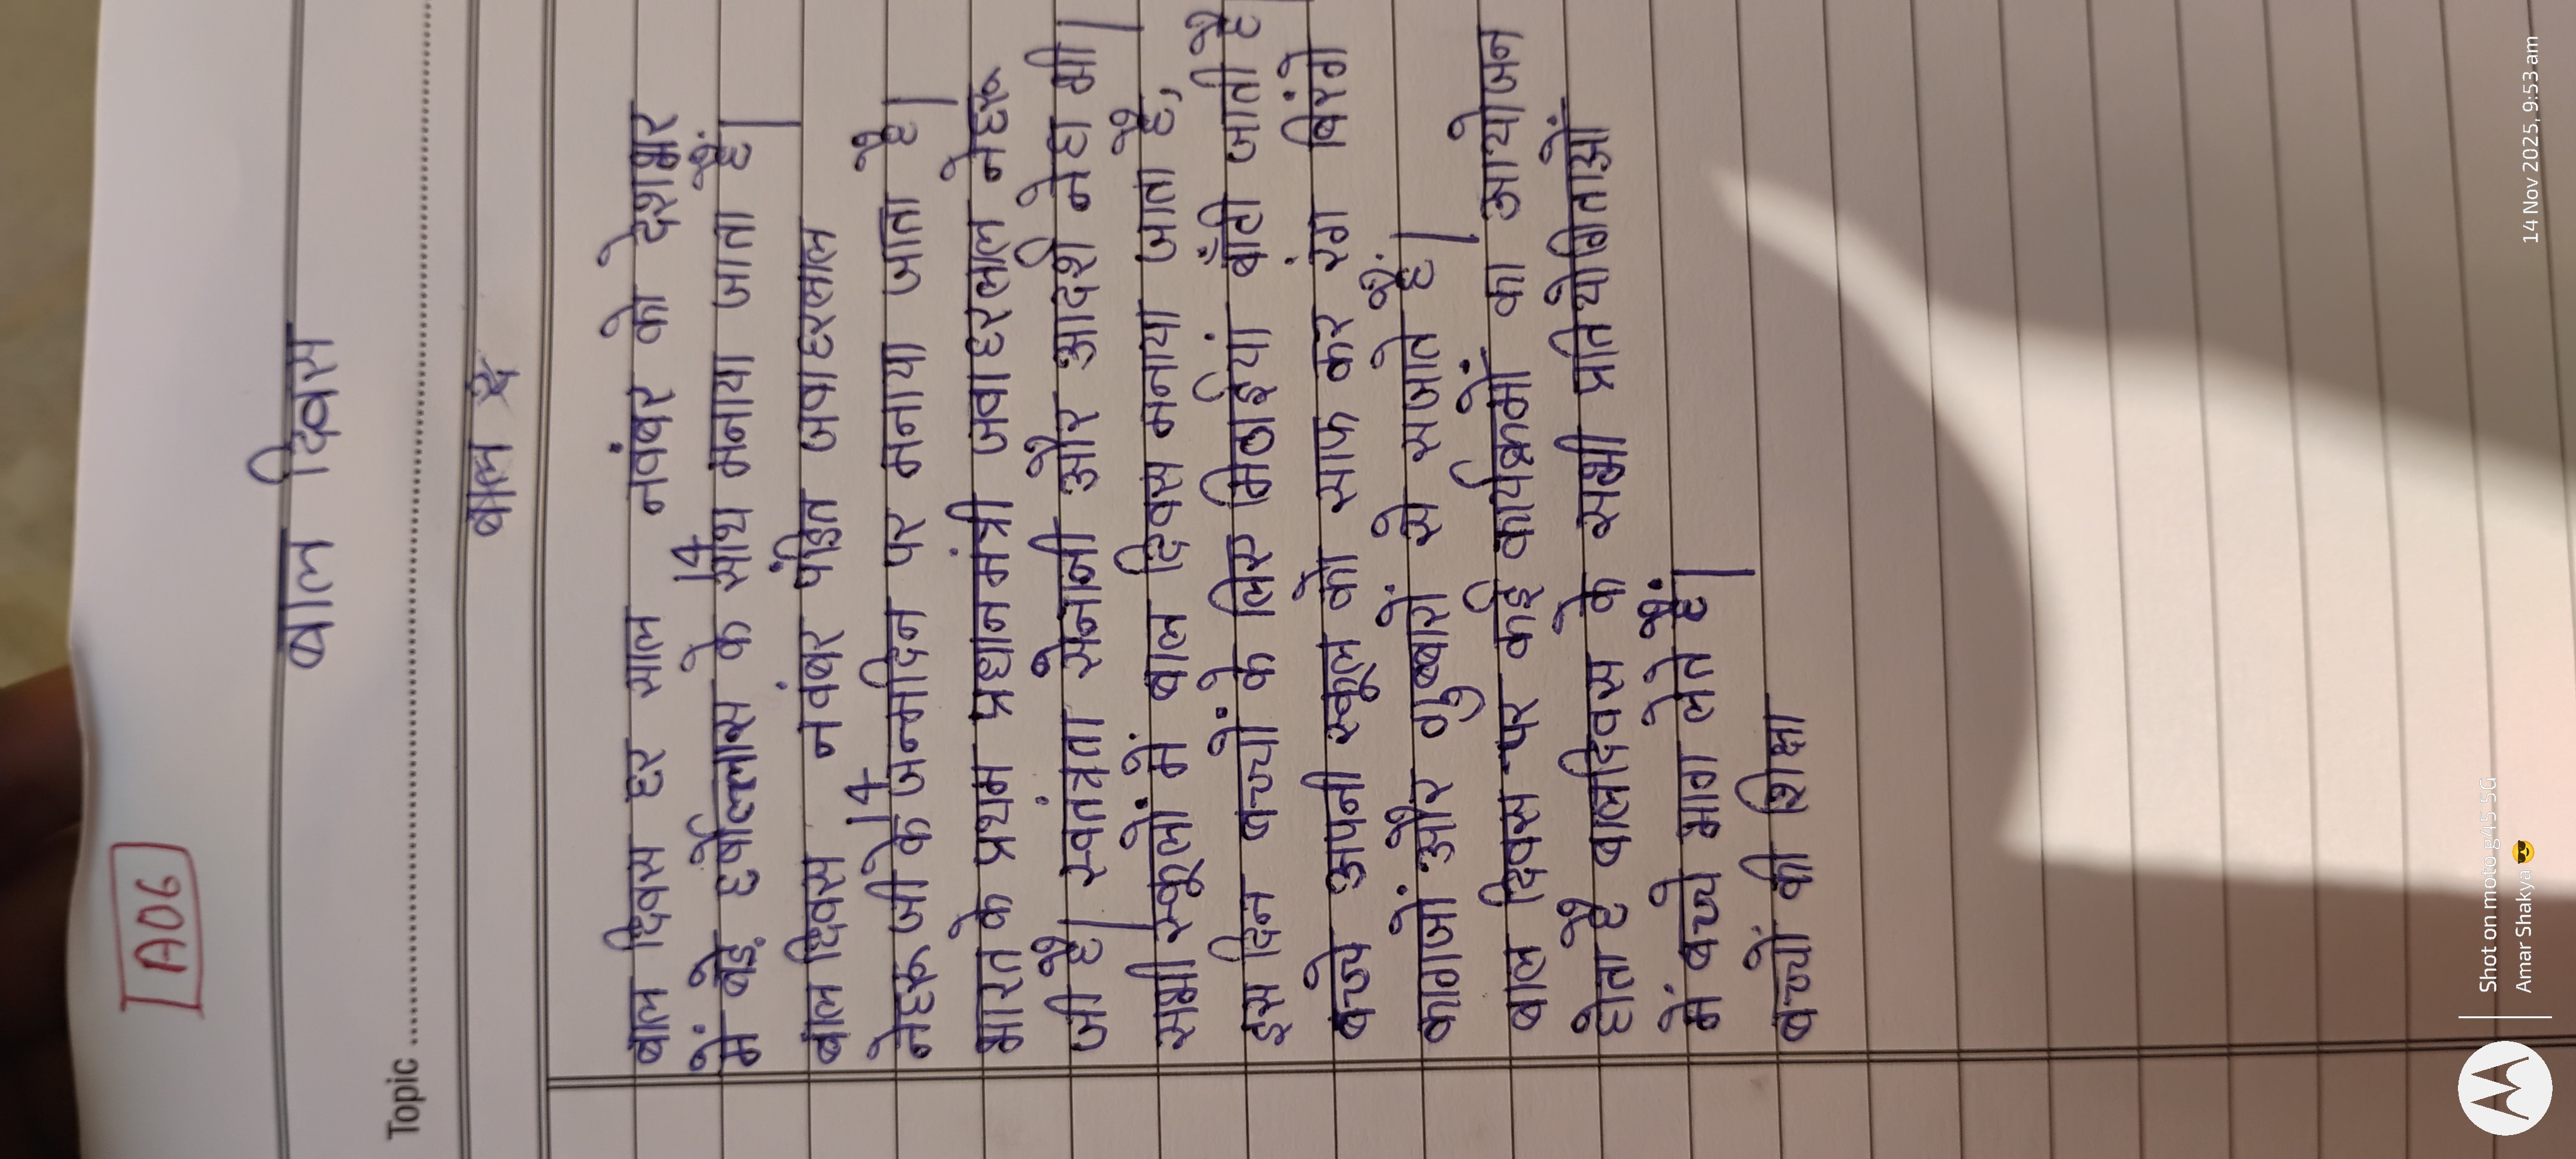 A06
बाल दिवस
Topic
बाल
बाल दिवस हर साल 14 नवंबर को देशभर
में बड़े हर्षोल्लास के साथ मनाया जाता हैं।
बाल दिवस 14 नवंबर पंडित जवाहरलाल
नेहरू जी के जन्मदिन पर मनाया जाता है।
भारत के प्रथम प्रधानमंत्री जवाहरलाल नेहरू
जी है। स्वतंत्रता सेनानी और आदर्श नेहा भी।
सभी स्कूलों में बाल दिवस मनाया जाता है,
इस दिन बच्चों के लिए मिठाइयां बाँटी जाती है
बच्चे अपनी स्कूल को साफ कर रंग बिरंगे
कागजों और गुब्बारों से सजाते हैं।
बाल दिवस पर कई कार्यक्रमों का आयोजन
होता है बालदिवस के सभी प्रतियोगिताओं
में बच्चे भाग लेते हैं।
बच्चों की शिक्षा
Shot on moto g45 5G
Amar Shakya 😎
14 Nov 2025, 9:53 am